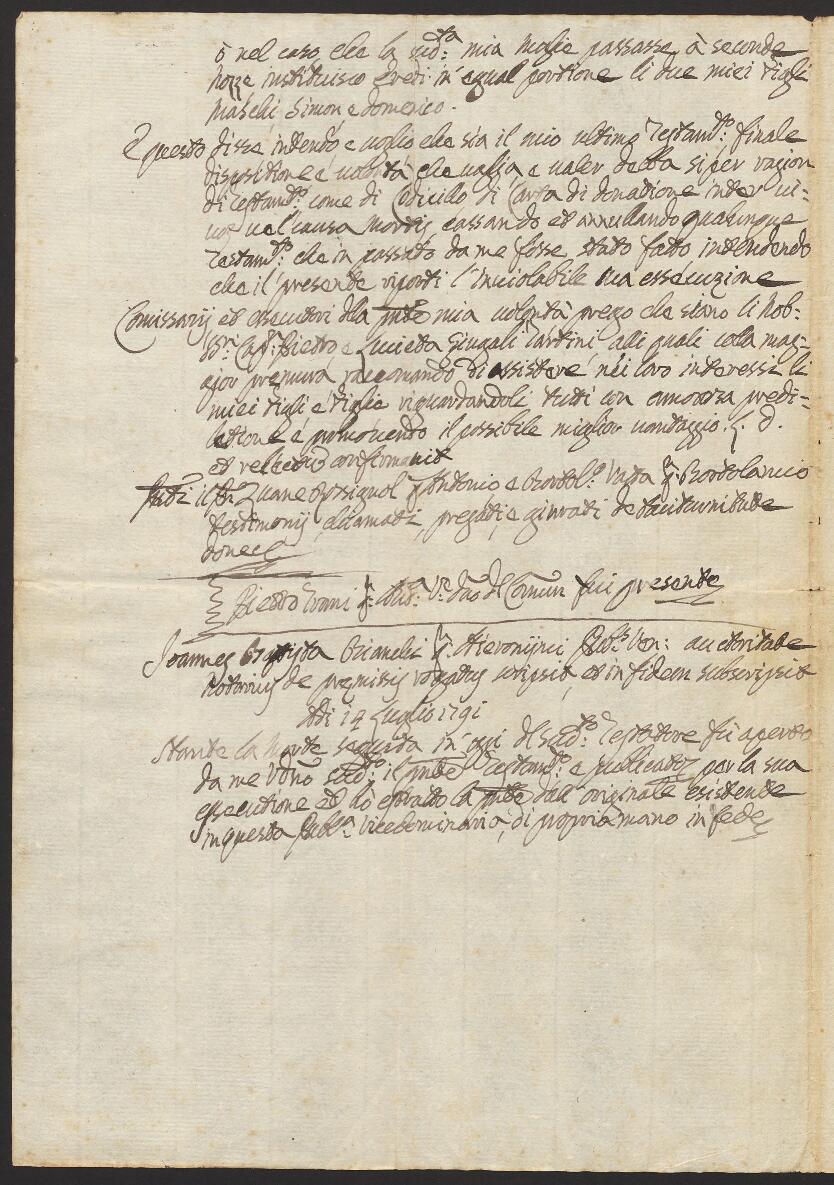 ò nel caso che la sud:ta mia moglie passasse à seconde
Nozze instituisco Eredi in egual portione li due miei Figli
Maschi Simon e Domenico.
E questo disse intendo e voglio che sia il mio ultimo Testam:to finale
dispositione e volontà che vaglia e valer debba si per ragion
di Testam:to come di Codicillo di Carta di donatione inter vi=
vos vel causa mortis, cassando et annullando qualunque
Testam:to che in passato da me fosse stato fatto intendendo
che il presente riporti l'inviolabile sua essecuzione
Comissarij et essecutori dlla pnte mia volontà prego che siano li Nob:
Sr. Cap: Pietro e Lucietta Giugali Tartini alli quali colla mag=
gior premura raccomando di assistere nei loro interessi li
miei Figli e Figlie riguardandoli tutti con amorosa predi=
letione e promovendo il possibile miglior vantaggio. L. D.
et relectu confirmavit
Pnti il Sr. Zuane Rossignol q Antonio e Bortol:o Vatta q. Bortolamio
Testimonij chiamati, pregati, e giurati de taciturnitate
donec
Pietro Trani q: Vo: dno del Comun fui presente
Joannes Baptista Bianchi q. Hieronijmi Pub:s Ven: auctoritate
Notarius de premissis rogatus scripsit, et in fidem subscripsit
Adi 14 Luglio 1791
Stante la Morte seguita in oggi del sud:to Testatore fù aperto
da me Vdno sud:to il pnte Testam:to e publicato per la sua
essecutione et hò estratto la pnte dall' originale esistente
in questa Pub:a Vicedominaria, di propria mano in fede